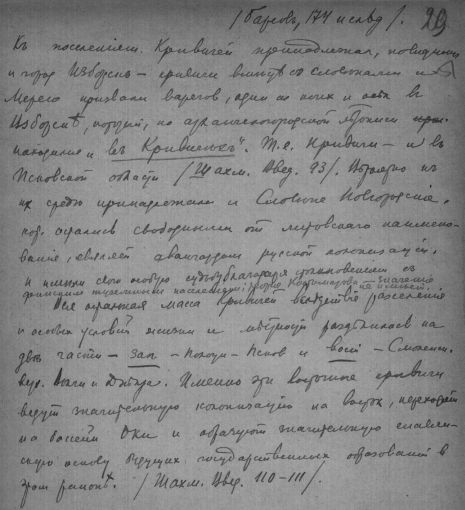 /Барсов, 174 и след/. 29
Къ поселением Кривичей принадлежал, повидимому
и город Изборскъ – кривичи вместе со словенами и
Мерею призвали варягов, один из коих и сел в
Изборскѣ, который, по архангелогородской лѣтописи
находился и "въ Кривичехъ". Т.е. Кривичи – и въ
Псковской области /Шахм. Введ. 93/. Вероятно къ
их среде принадлежали и Словене Новгородские,
кот. остались свободными от литовского наимено-
вания, явились авангардом русской колонизации
и имели свою особую судьбу благодаря
финским туземным населением
Вся остальная масса Кривичей вследствие расселения
и особых условий жизни и местности раздвоилась на
двѣ части – зап – Полоцк – Псков и вост – Смоленск.
верх. Волги и Днѣпра. Именно эти восточные кривичи
ведут значительную колонизацию на восток, переходят
на бассейн Оки и образуют значительную славян-
скую основу будущих государственных образований в
этом районѣ. /Шахм. Введ. 110–111/.